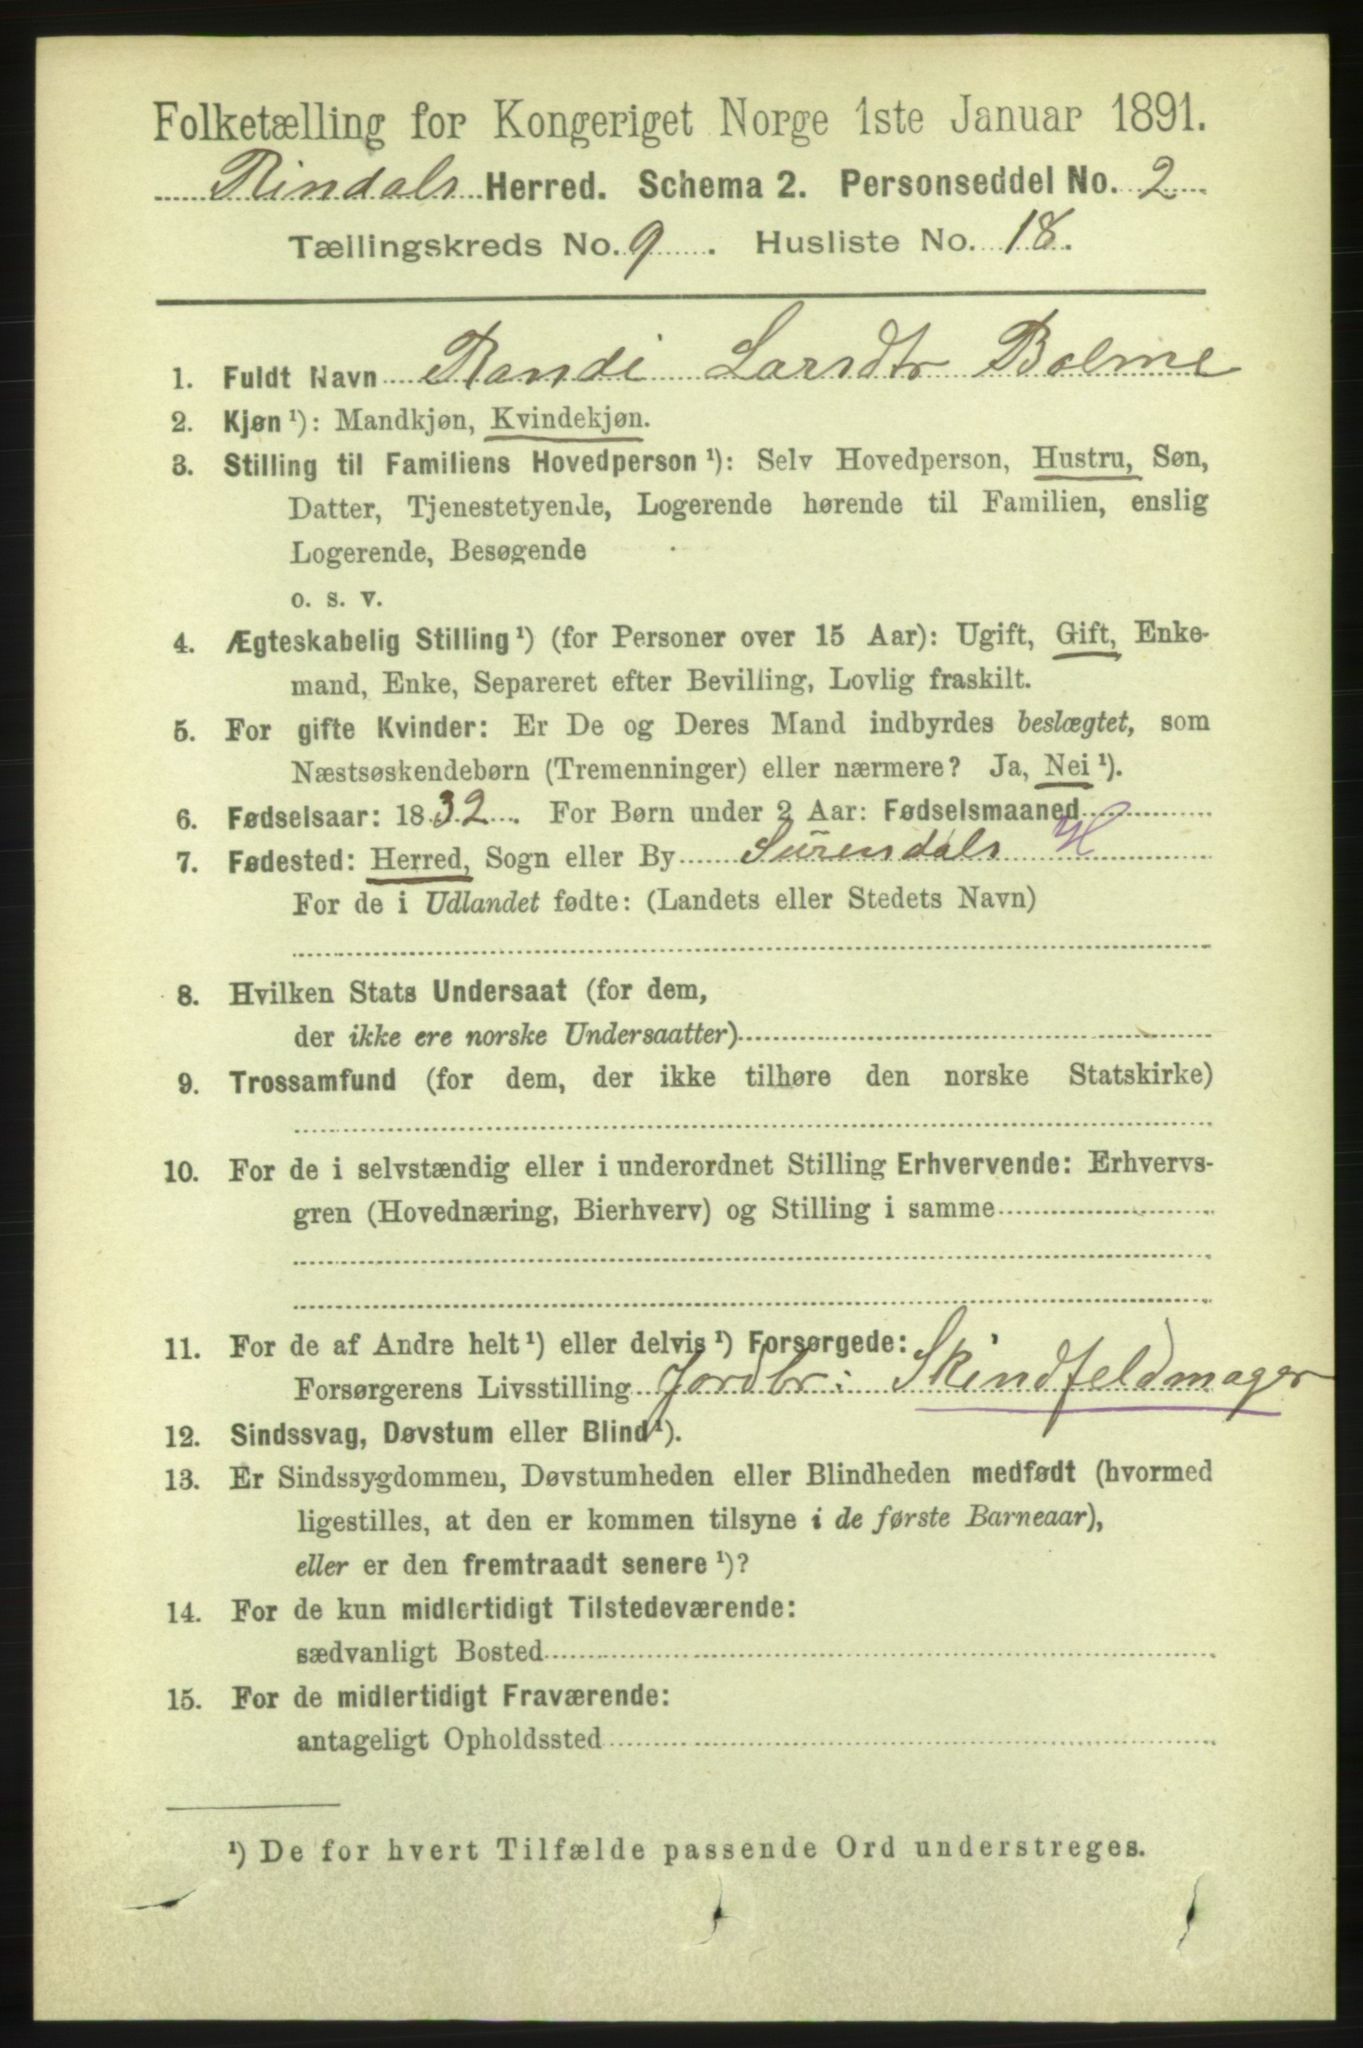 Folketælling for Kongeriget Norge 1ste Januar 1891.
Rindals Herred. Schema 2. Personseddel No. 2
Tællingskreds No. 9. Husliste No. 18.
1. Fuldt Navn Randi Larsdtr Bolme
2. Kjøn ¹): Mandkjøn, Kvindekjøn.
3. Stilling til Familiens Hovedperson ¹): Selv Hovedperson, Hustru, Søn,
Datter, Tjenestetyende, Logerende hørende til Familien, enslig
Logerende, Besøgende
o. s. v.
4. Ægteskabelig Stilling ¹) (for Personer over 15 Aar): Ugift, Gift, Enke-
mand, Enke, Separeret efter Bevilling, Lovlig fraskilt.
5. For gifte Kvinder: Er De og Deres Mand indbyrdes beslægtet, som
Næstsøskendebørn (Tremenninger) eller nærmere? Ja, Nei ¹).
6. Fødselsaar: 1832. For Børn under 2 Aar: Fødselsmaaned
7. Fødested: Herred, Sogn eller By Surendals H
For de i Udlandet fødte: (Landets eller Stedets Navn)
8. Hvilken Stats Undersaat (for dem,
der ikke ere norske Undersaatter)
9. Trossamfund (for dem, der ikke tilhøre den norske Statskirke)
10. For de i selvstændig eller i underordnet Stilling Erhvervende: Erhvervs-
gren (Hovednæring, Bierhverv) og Stilling i samme
11. For de af Andre helt ¹) eller delvis ¹) Forsørgede:
Forsørgerens Livsstilling Jordbr: Skindfeldmager
12. Sindssvag, Døvstum eller Blind ¹).
13. Er Sindssygdommen, Døvstumheden eller Blindheden medfødt (hvormed
ligestilles, at den er kommen tilsyne i de første Barneaar),
eller er den fremtraadt senere ¹)?
14. For de kun midlertidigt Tilstedeværende:
sædvanligt Bosted
15. For de midlertidigt Fraværende:
antageligt Opholdssted
¹) De for hvert Tilfælde passende Ord understreges.